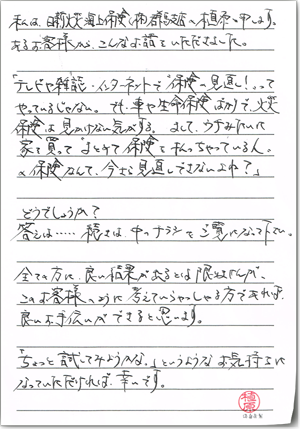 私は、日新火災海上保険相群馬支店の植原と申します。
あるお客様から、こんなお話をいただきました。
「テレビや雑誌・インターネットで"保険の見直し!"って
やっているじゃない。でも、車や生命保険ばかりで、火災
保険は見かけない気がする。まして、ウチみたいに
家を買って"まとめて保険を払っちゃっている人。
の保険なんて、今さら見直しできないよね？」
どうでしょうか？
答えは……続きは、中のチラシをご覧になって下さい。
全ての方に、良い結果があるとは限りませんが、
このお客様のように考えていらっしゃる方であれば、
良いお手伝いができると思います。
「ちょっと試してみようかな。」というようなお気持ちに
なっていただければ、幸いです。
植原